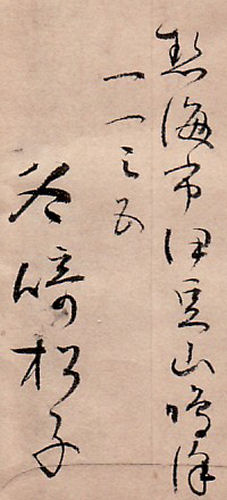 熱海市伊豆山鳴沢
一一三五
谷崎松子